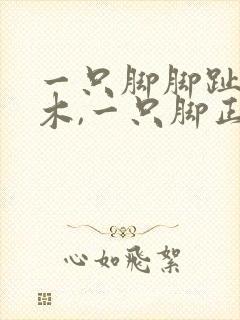 一只脚脚趾
木,一只脚正
心如飛絮